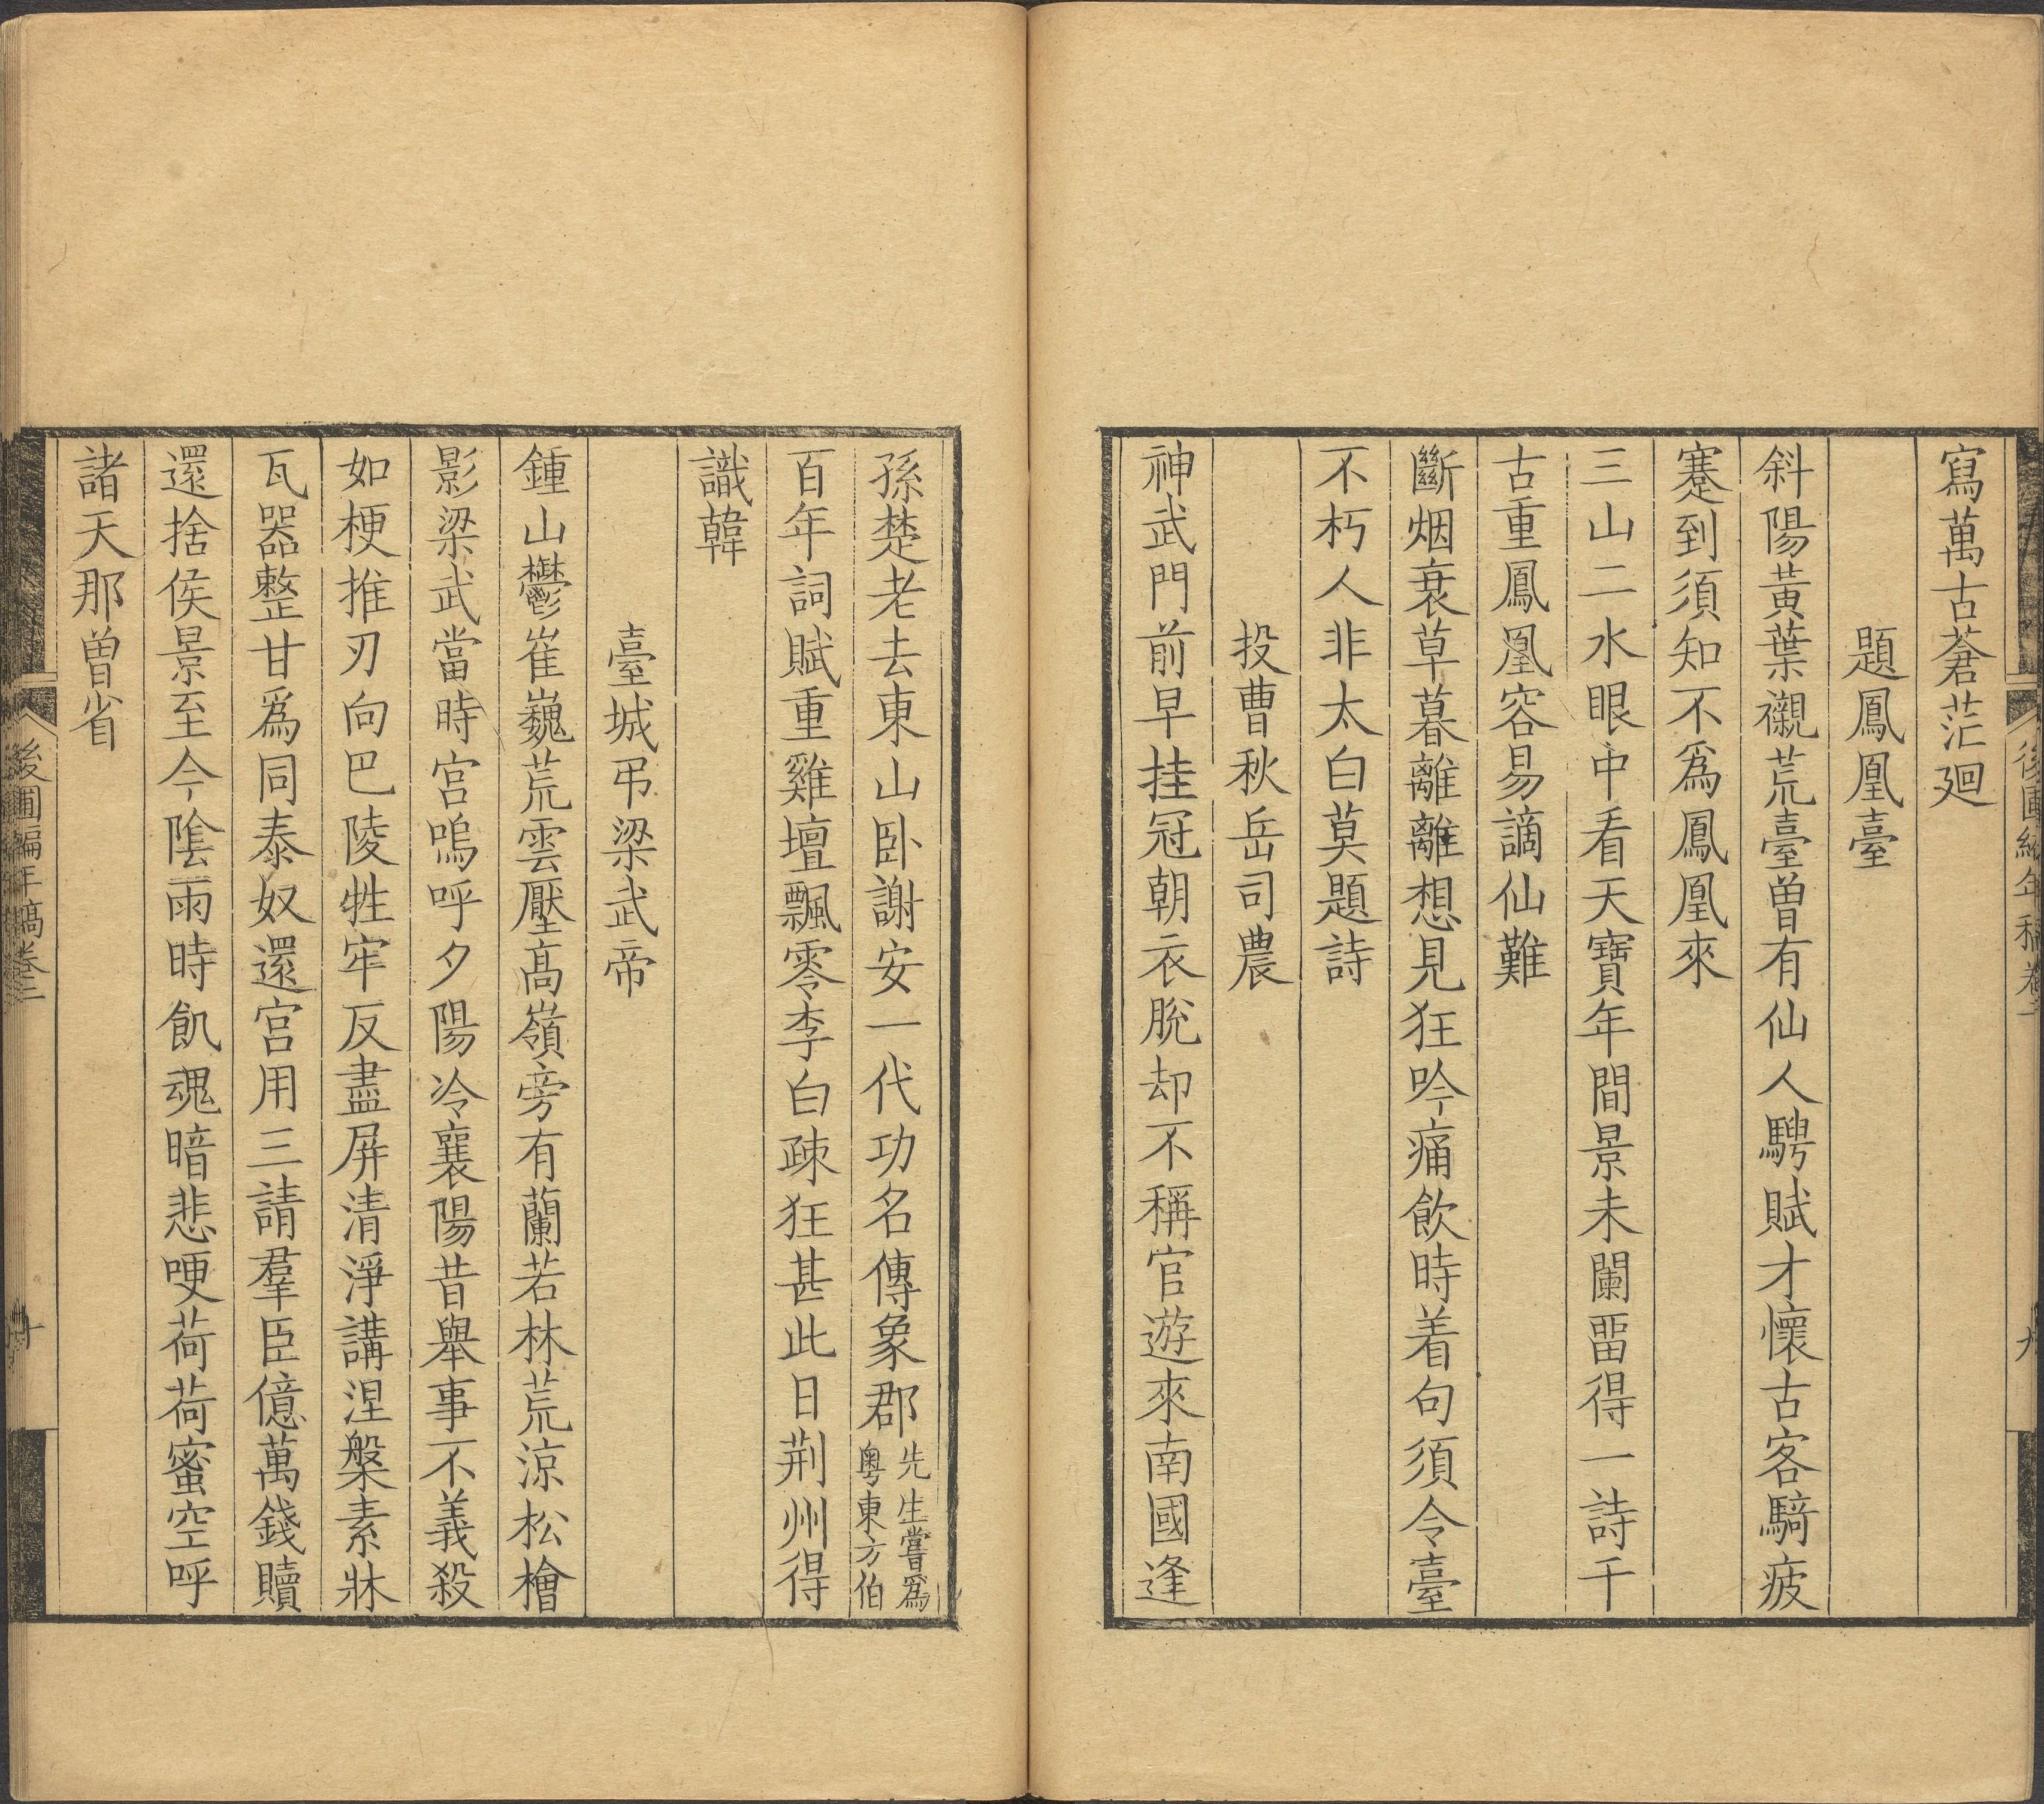 寫萬古蒼茫廻
題鳳凰臺
斜陽黃葉襯荒臺曾有仙人騁賦才懷古客騎疲
蹇到須知不為鳳凰來
三山二水眼中看天寶年間景未闌畱得一詩千
古重鳳凰容易謫仙難
斷烟衰草暮離離想見狂吟痛飲時着句須令臺
不朽人非太白莫題詩
投曹秋岳司農
神武門前早挂冠朝衣脫却不稱官遊來南國逢
孫楚老去東山卧謝安一代功名傳象郡先生嘗為粵東方伯
百年詞賦重雞壇飄零李白疎狂甚此日荆州得
識韓
臺城弔梁武帝
鍾山鬱崔巍荒雲壓高嶺旁有蘭若林荒涼松檜
影梁武當時宮嗚呼夕陽冷襄陽昔舉事不義殺
如梗推刃向巴陵牲牢反盡屏清淨講涅槃素牀
瓦器整甘為同泰奴還宮用三請羣臣億萬錢贖
還捨侯景至今陰雨時飢魂暗悲哽荷荷蜜空呼
諸天那曾省
後圃編年稿卷二
十
後圃編年稿卷二
九